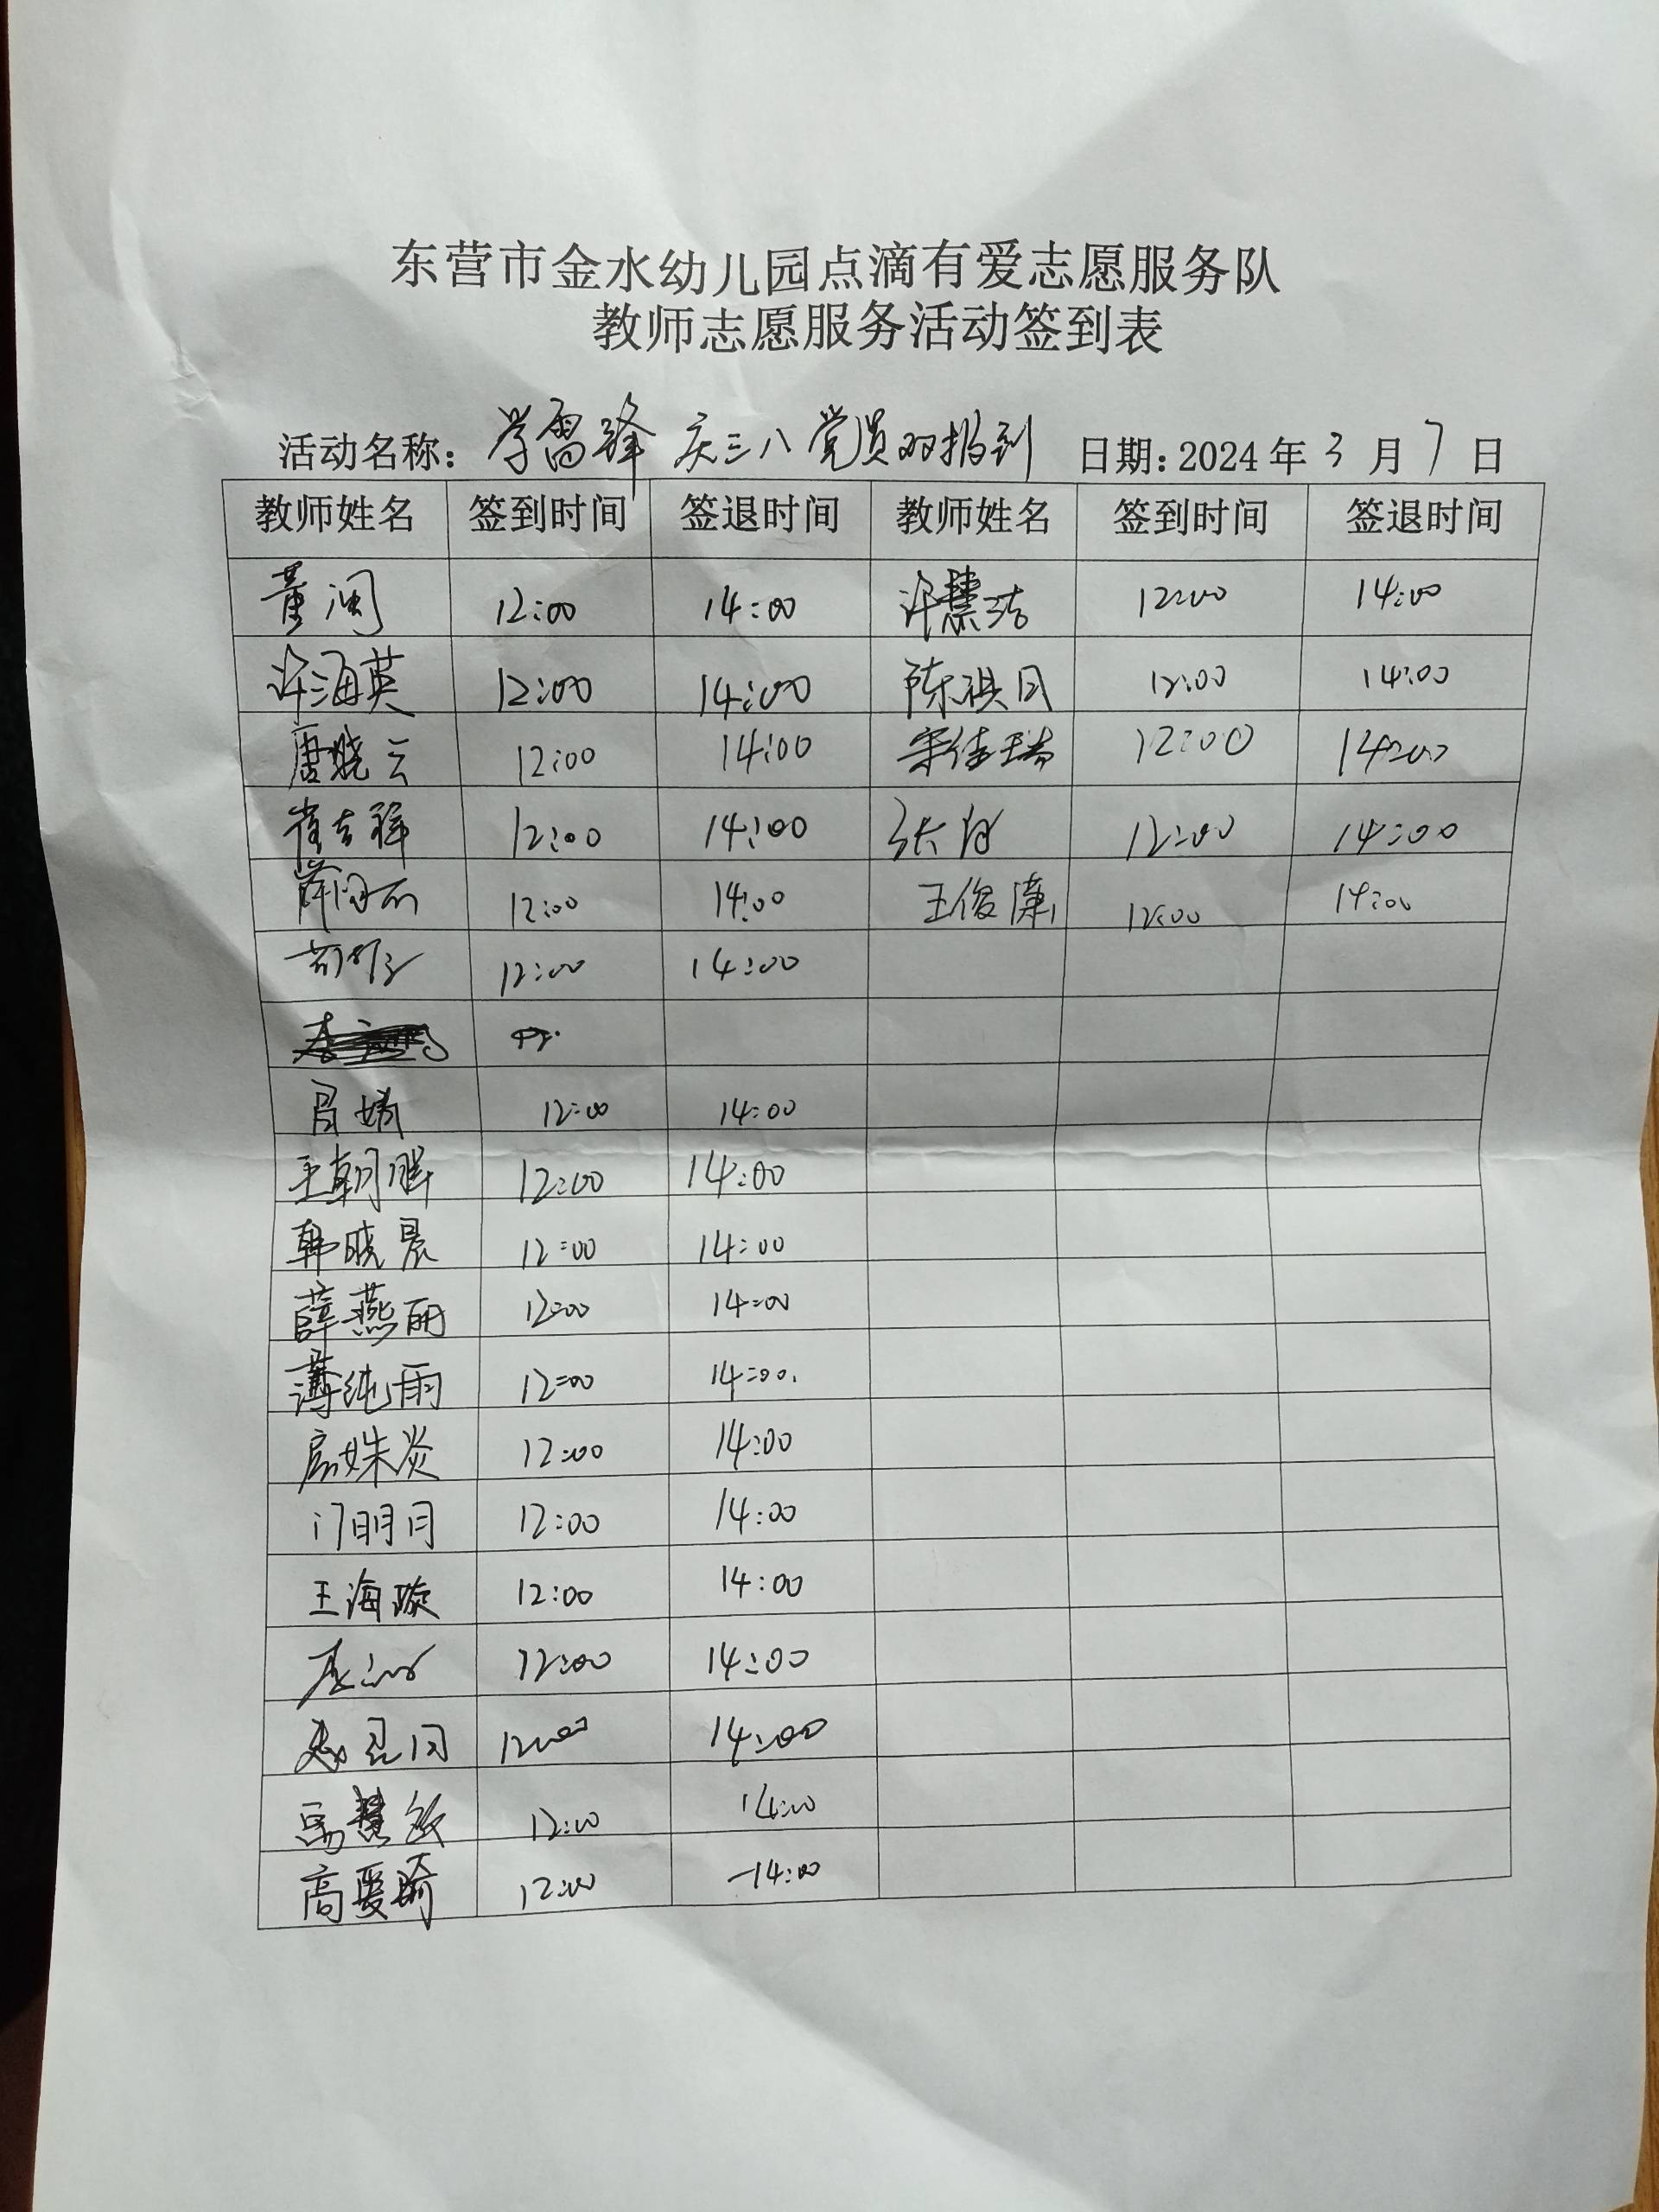 东营市金水幼儿园点滴有爱志愿服务队
教师志愿服务活动签到表
活动名称：学雷锋 庆三八 党员双报到 日期：2024年3月7日
教师姓名 签到时间 签退时间 教师姓名 签到时间 签退时间
董润 12:00 14:00 许慧洁 12:00 14:00
许海英 12:00 14:00 陈祺月 12:00 14:00
唐晓云 12:00 14:00 宋佳瑞 12:00 14:00
崔吉祥 12:00 14:00 张 12:00 14:00
12:00 14:00 王俊潇 12:00 14:00
12:00 14:00
吕婧 12:00 14:00
王朝胜 12:00 14:00
韩晓晨 12:00 14:00
薛燕丽 12:00 14:00
薄纯雨 12:00 14:00
房姝炎 12:00 14:00
门明月 12:00 14:00
王海璇 12:00 14:00
12:00 14:00
12:00 14:00
12:00 14:00
高雯琦 12:00 14:00